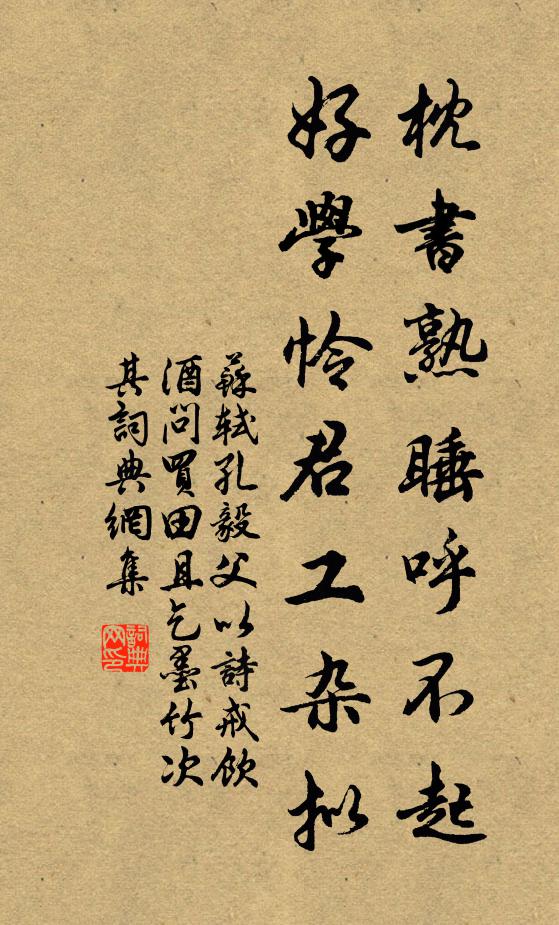 枕書熟睡呼不起
好學怜君工杂拟
蘇軾孔毅父以詩戒飲
酒問買田且乞墨竹次
其詞典網集
詞典
网印